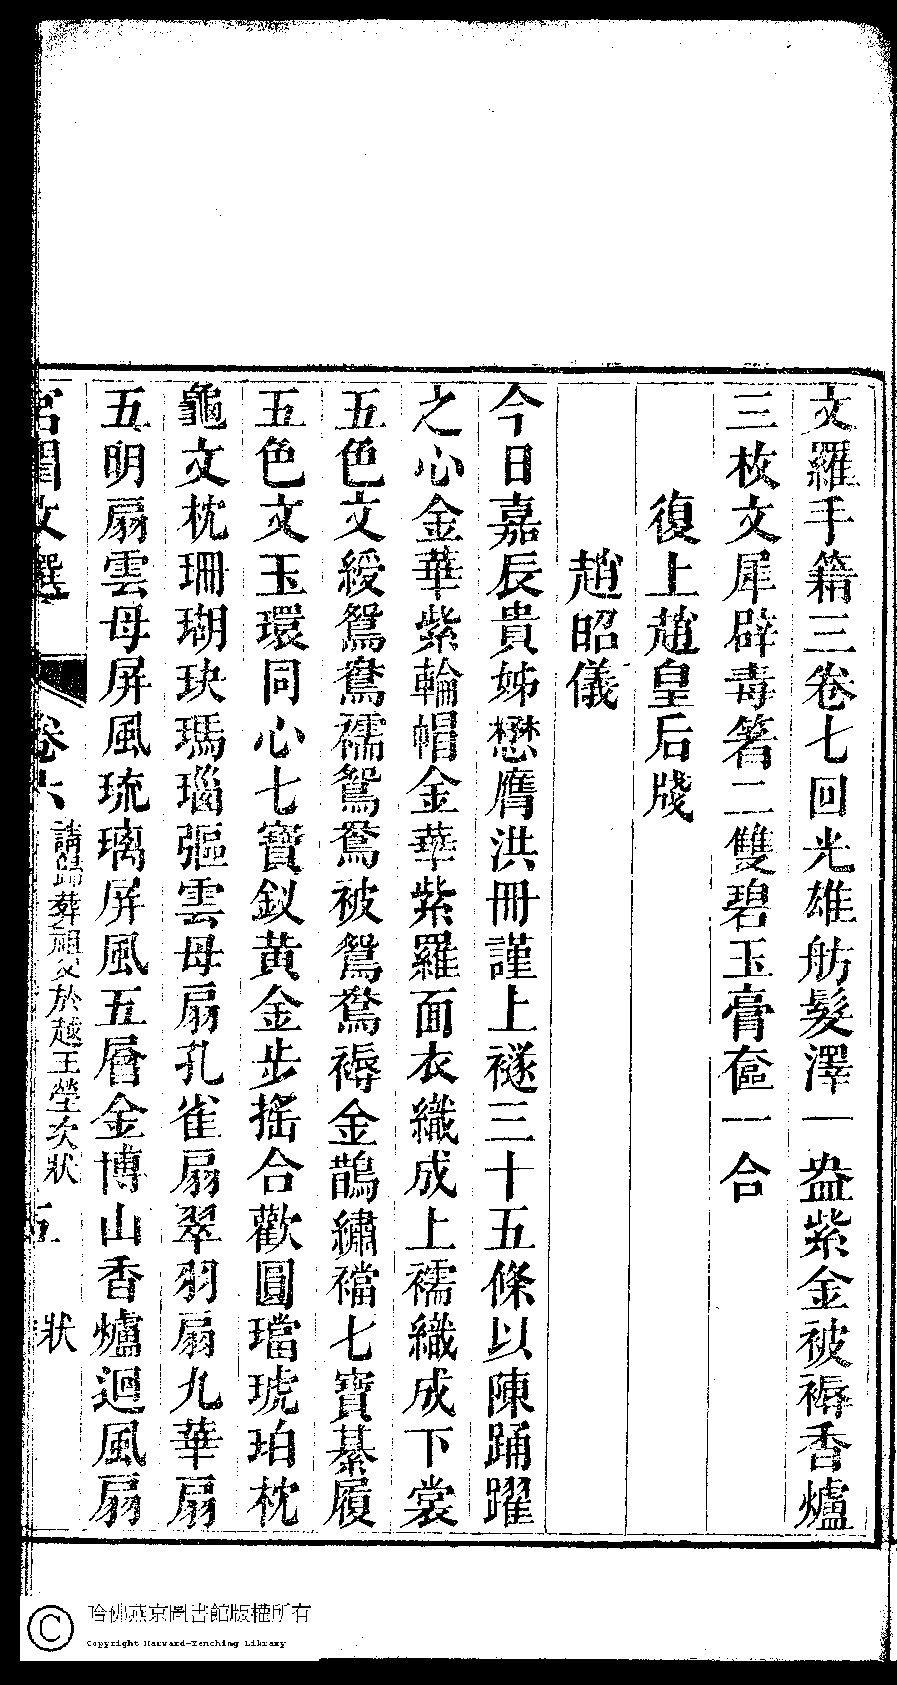 文羅手籍三卷七回光雄舫髮澤一盎紫金被褥香爐
三枚文犀辟毒箸二雙碧玉膏奩一合
復上趙皇后牋
趙昭儀
今日嘉辰貴姊懋膺洪冊謹上襚三十五條以陳踊躍
之心金華紫輪帽金華紫羅面衣織成上襦織成下裳
五色文綬鴛鴦襦鴛鴦被鴛鴦褥金鵲繡襠七寶綦履
五色文玉環同心七寶釵黃金步搖合歡圓璫琥珀枕
龜文枕珊瑚玦瑪瑙彄雲母扇孔雀扇翠羽扇九華扇
五明扇雲母屏風琉璃屏風五層金博山香爐迴風扇
宮閨文選 卷六 請歸葬祖父於越王塋次狀 五 狀
哈佛燕京圖書館版權所有
Copyright Harvard-Yenching Library